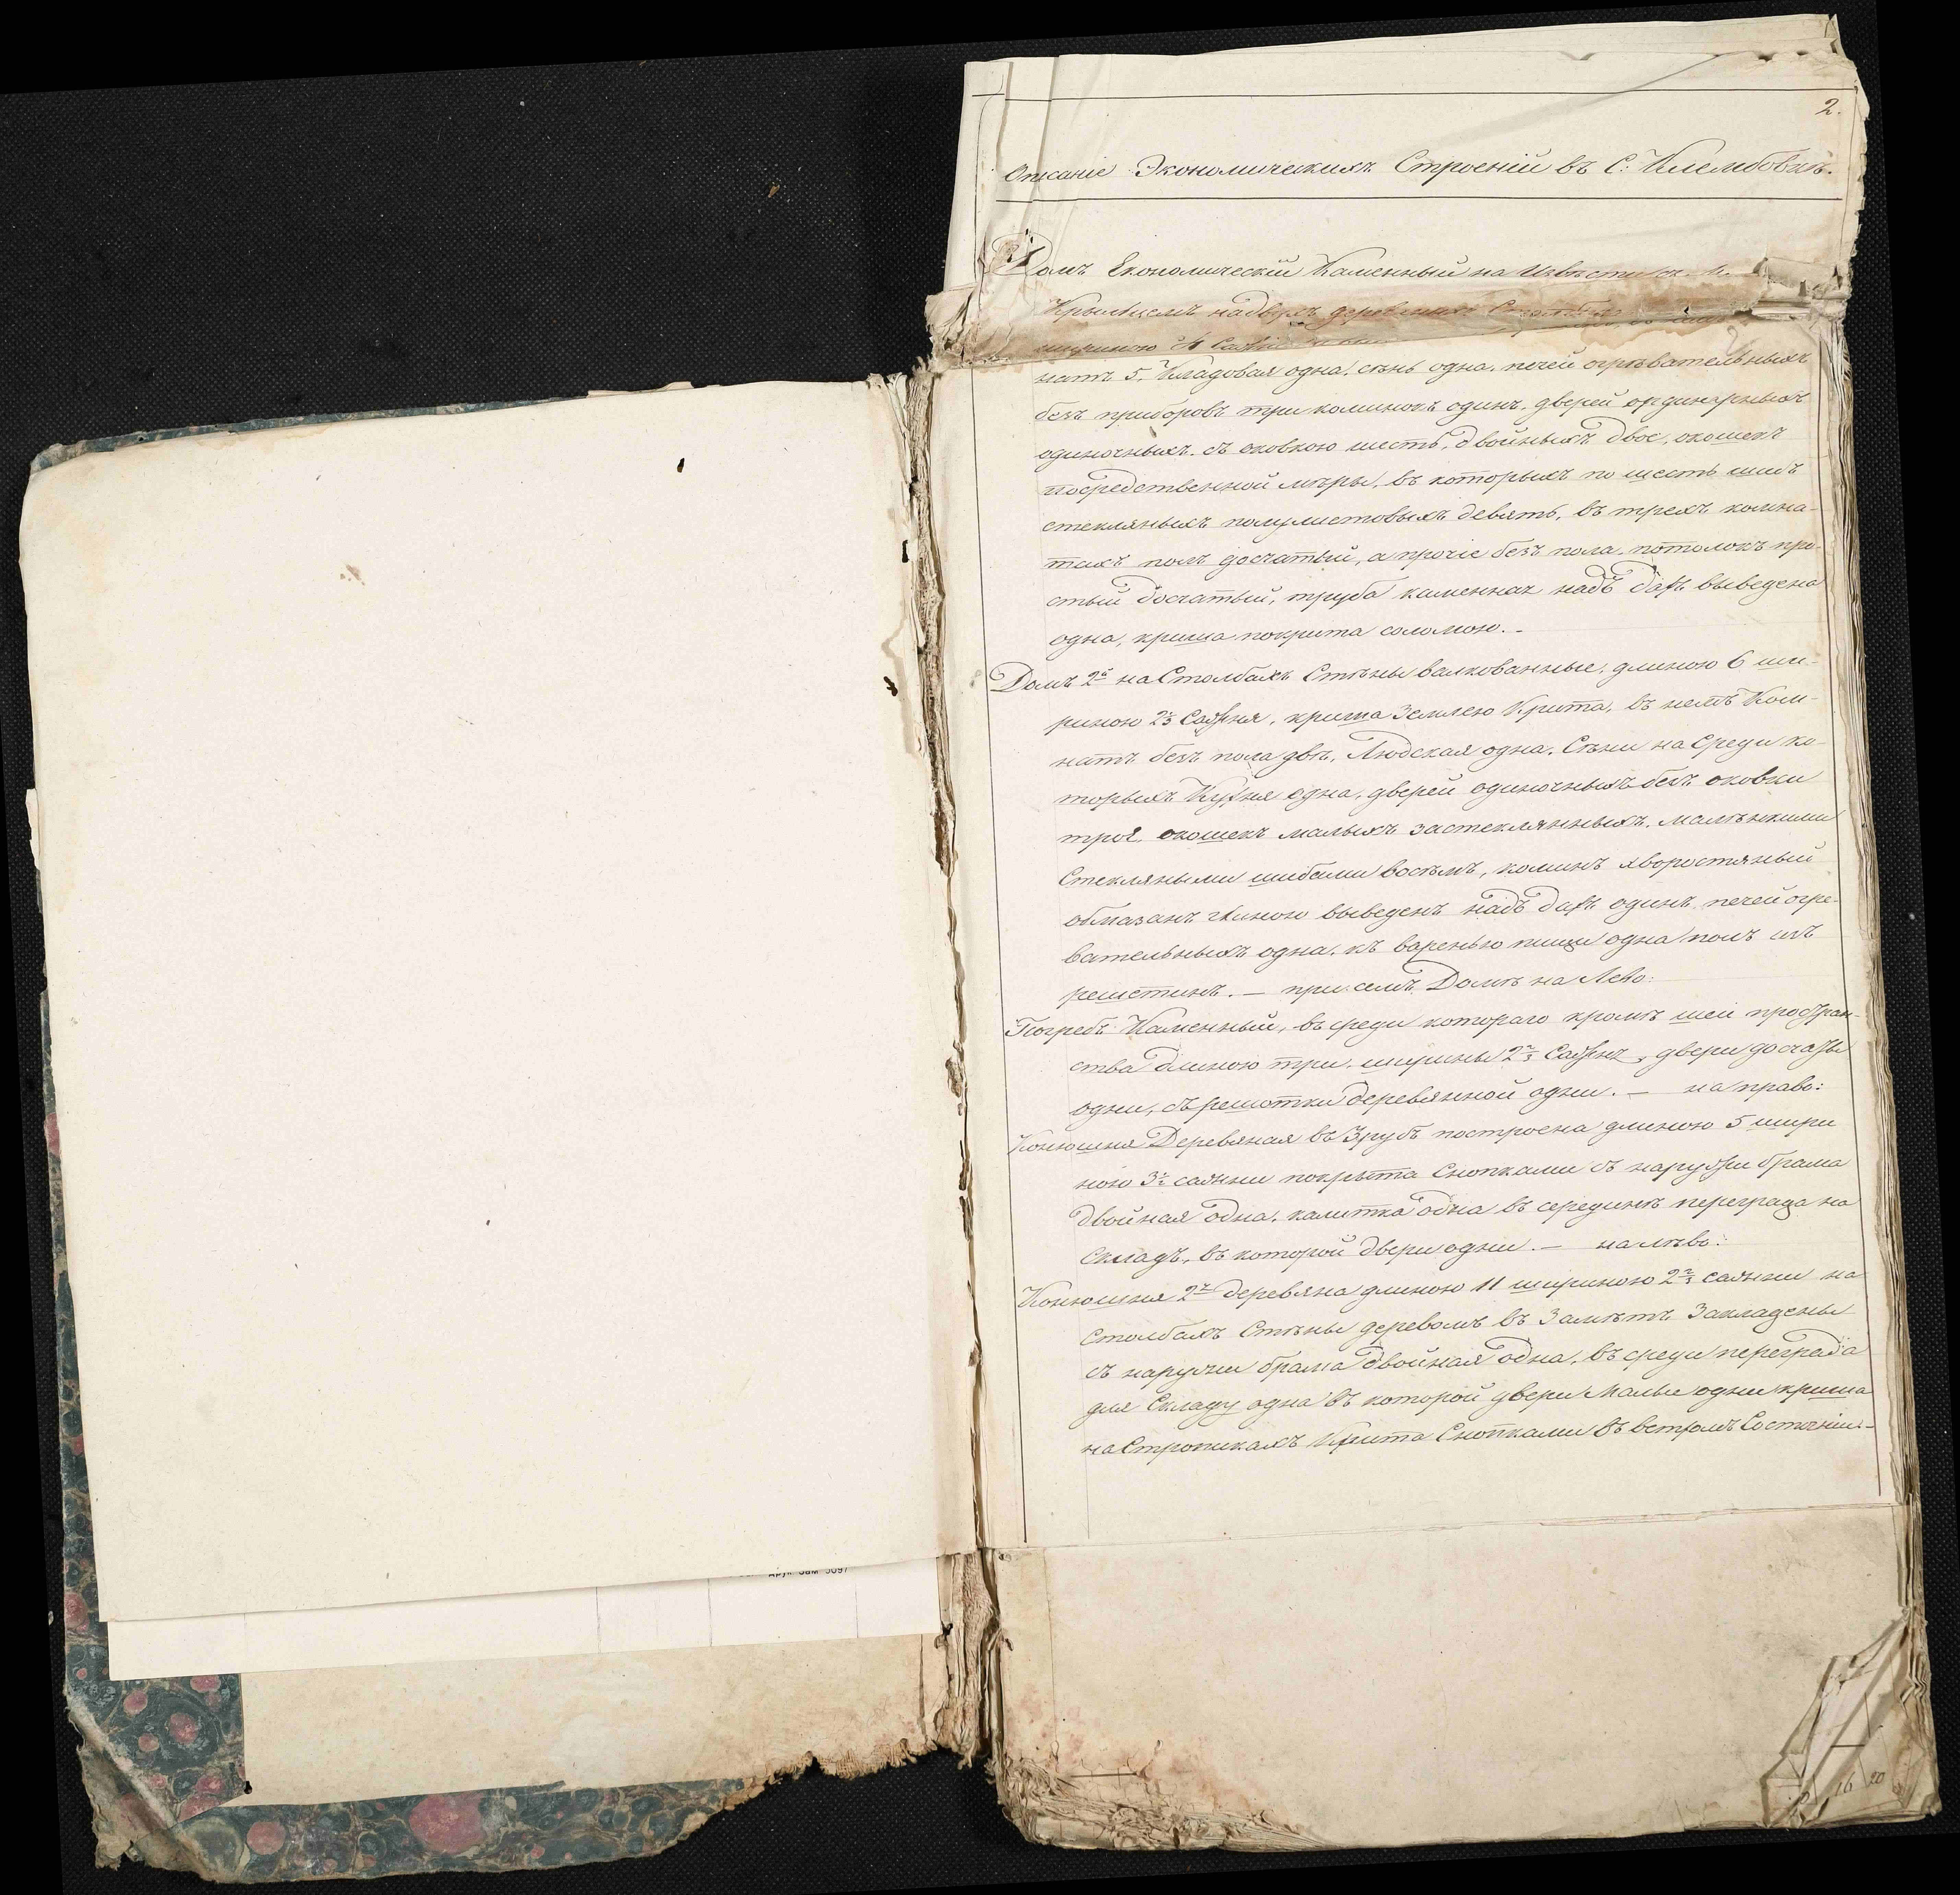 2.
Описаніе Экономическихъ Строеній въ С: Клембовкѣ.
Домъ Економическій Каменный на Извѣсти съ
Крыльцемъ надверъ деревянныхъ
шириною 4
натъ 5. Кладовая одна, сѣнь одна, печей огрѣвательныхъ
безъ приборовъ три коминокъ одинъ, дверей ординарныхъ
одиночныхъ съ оковкою шесть, двойныхъ двое, окошекъ
посредственной мѣры, въ которыхъ по шесть шибъ
стекляныхъ полулистовыхъ девять, въ трехъ комна-
тахъ полъ досчатый, а прочіе безъ пола, потолокъ про-
стый досчатый, труба каменная надъ дахъ выведена
одна, криша покрита соломою. -
Домъ 2й на Столбахъ Стѣны валкованные, длиною 6 ши-
риною 2⅔ Сажня, криша Землею Крита, въ немъ Ком-
натъ безъ пола двѣ, Людская одна, Сѣни на Среди ко-
торыхъ Кухня одна, дверей одиночныхъ безъ оковки
трое, окошекъ малыхъ застеклянныхъ малѣнкими
Стекляными шибами восѣмъ, коминъ хворостяный
обмазанъ глиною выведенъ надъ дахъ одинъ печей огре-
вательныхъ одна, къ варенью пищи одна полъ изъ
решетинъ. — при семъ Домѣ на Лево:
Погребъ Каменный, въ среди котораго кромѣ шеи простран-
ства длиною три, ширины 2⅔ Саженъ, двери досчаты
одни, съ решотки деревянной одни. — на право:
Конюшня Деревяная въ Зрубъ построена длиною 5 шири
ною 3½ сажни покрыта Снопками съ наружи брама
двойная одна, калитка одна въ серединѣ переграда на
складъ, въ которой двери одни. — на лѣво:
Конюшня 2я деревяна длиною 11 шириною 2⅔ сажни на
Столбахъ Стѣны деревомъ въ Замѣтъ Закладены
съ наружи брама двойная одна, въ среди переграда
для Складу одна въ которой двери малы одни криша
на Стропикахъ Крита Снопками въ ветхомъ Состояніи. -
16 20
Зам 5097